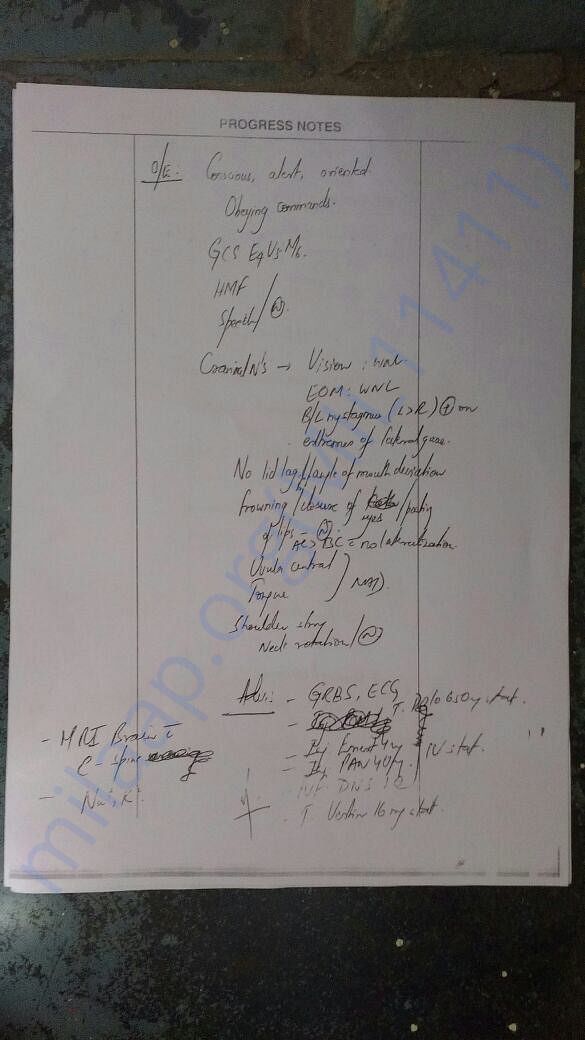 PROGRESS NOTES
O/E: Conscious, alert, oriented.
Obeying commands.
GCS E4 V5 M6.
HMF
Speech / (N).
Cranial N's → Vision : WNL
EOM: WNL
B/L nystagmus (L>R) (+) on
extremes of lateral gaze.
No lid lag / angle of mouth deviation
frowning / closure of eyes /
of lips - (N).
AC > BC no lateralization
Uvula central
Tongue } NAD.
Shoulder
Neck rotation / (N)
Adv: - GRBS, ECG
- T. Dolo 650mg stat.
- Inj Emeset 4mg
- Inj. PAN 40mg / IV stat.
- IVF DNS
- T. Vertin 16 mg stat.
- MRI Brain c̄
C-Spine
- Na+, K+
milaap.org